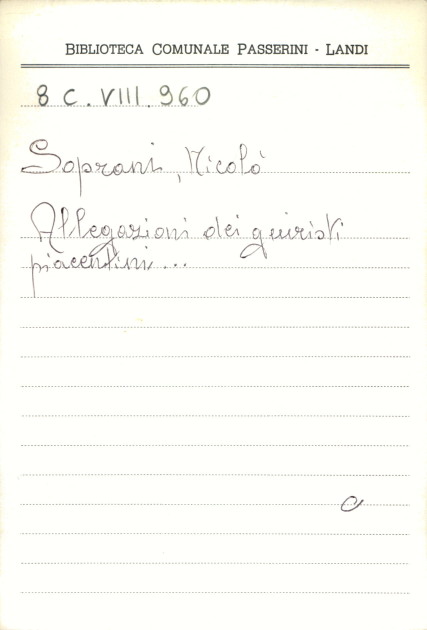 BIBLIOTECA COMUNALE PASSERINI - LANDI
8 C. VIII. 960
Soprani, Nicolò
Allegazioni dei giuristi
piacentini...